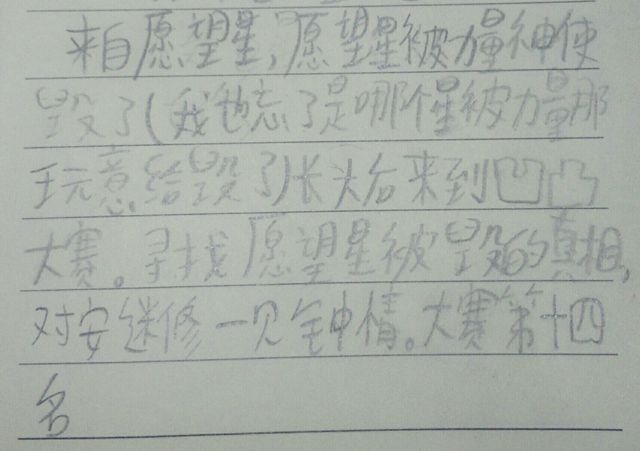 来自愿望星,愿望星被力量神使
毁了(我也忘了是哪个星被力量那
玩意给毁了)长大后来到凹凸
大赛。寻找愿望星被毁的真相,
对安迷修一见钟情。大赛第十四
名